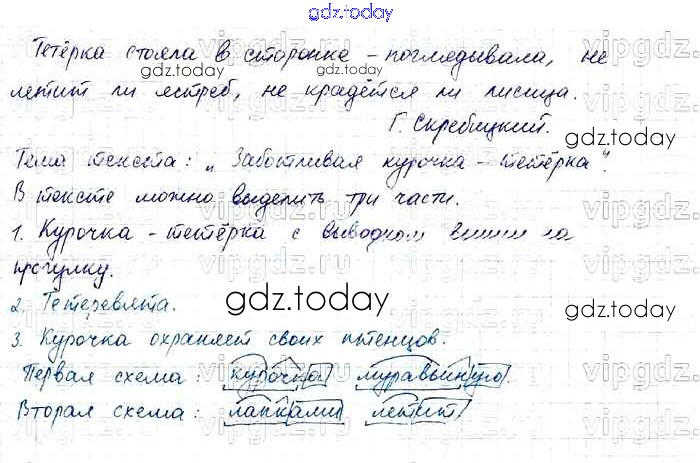 gdz.today
Тетёрка стояла в сторонке - поглядывала, не
летит ли ястреб, не крадётся ли лисица.
Г. Скребицкий.
Тема текста: "Заботливая курочка - тетёрка".
В тексте можно выделить три части.
1. Курочка - тетёрка с выводком вышли на
прогулку.
2. Тетеревята.
3. Курочка охраняет своих птенцов.
Первая схема: курочка муравьиную.
Вторая схема: лапками летит,